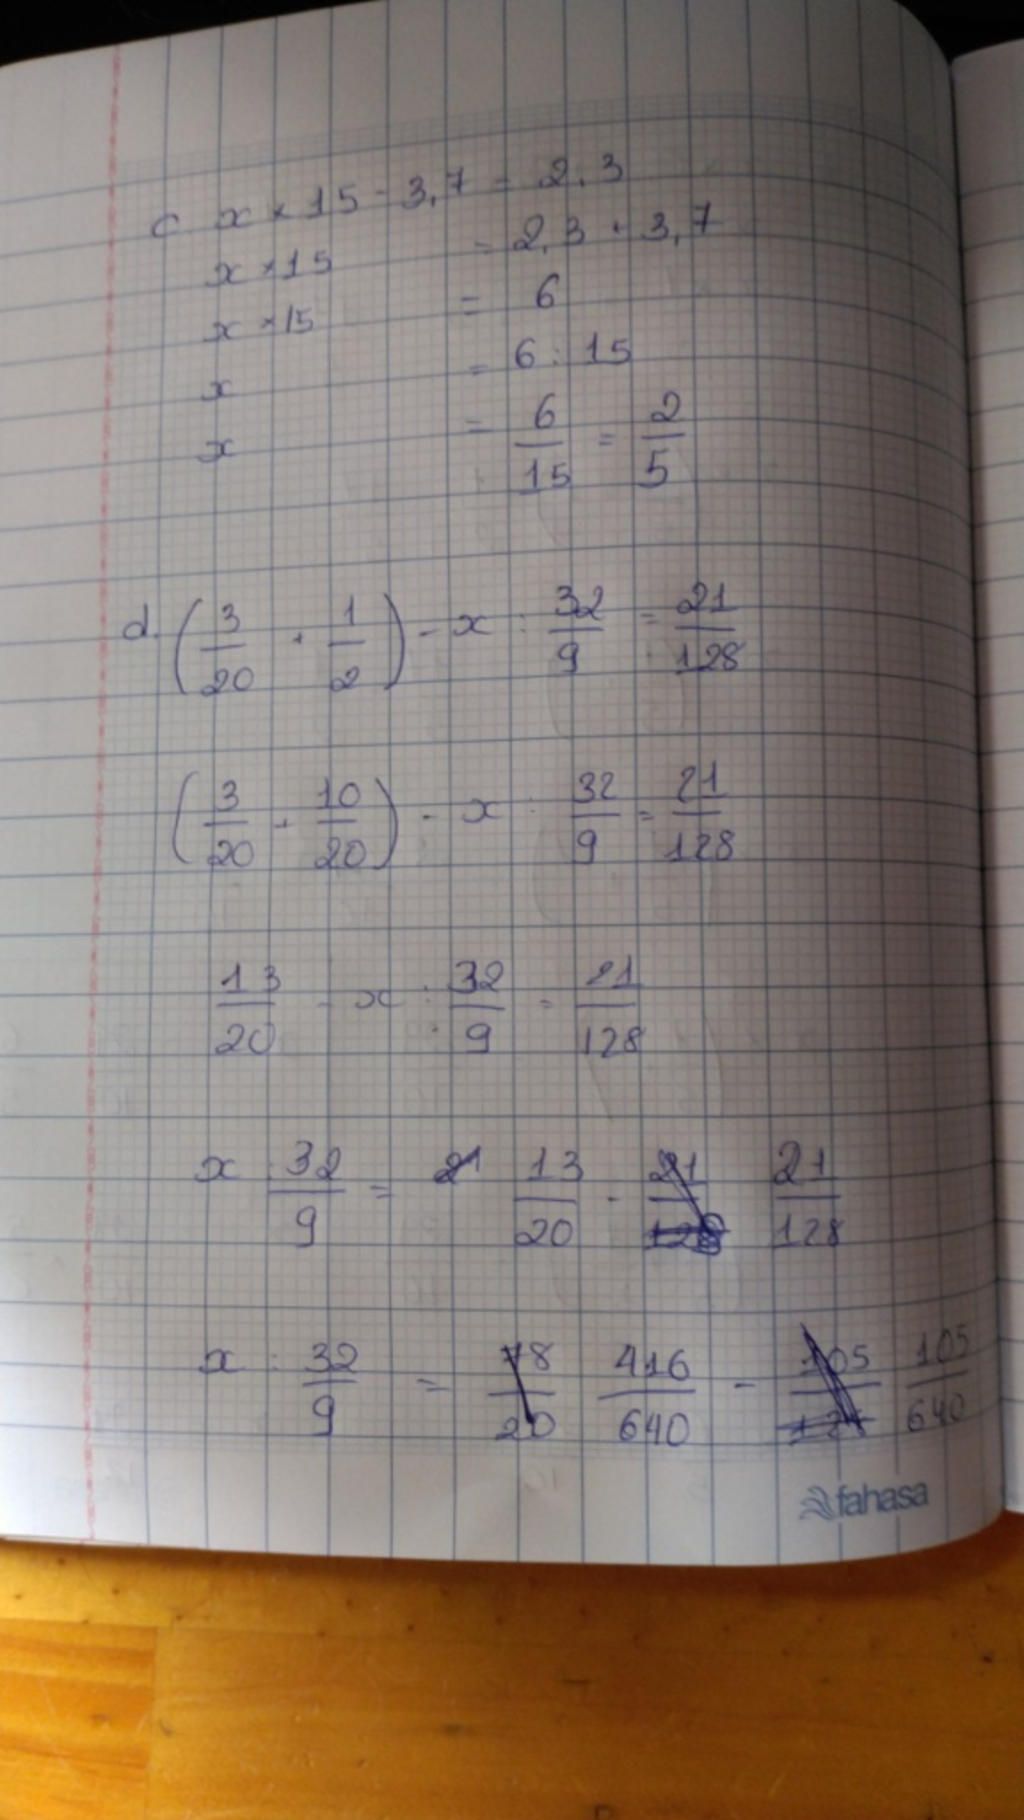 c x × 15 - 3,7 = 2,3
x × 15 = 2,3 + 3,7
x × 15 = 6
x = 6 : 15
x = 6/15 = 2/5
d. (3/20 + 1/2) - x : 32/9 = 21/128
(3/20 + 10/20) - x : 32/9 = 21/128
13/20 - x : 32/9 = 21/128
x : 32/9 = 13/20 - 21/128
x : 32/9 = 416/640 - 105/640
fahasa